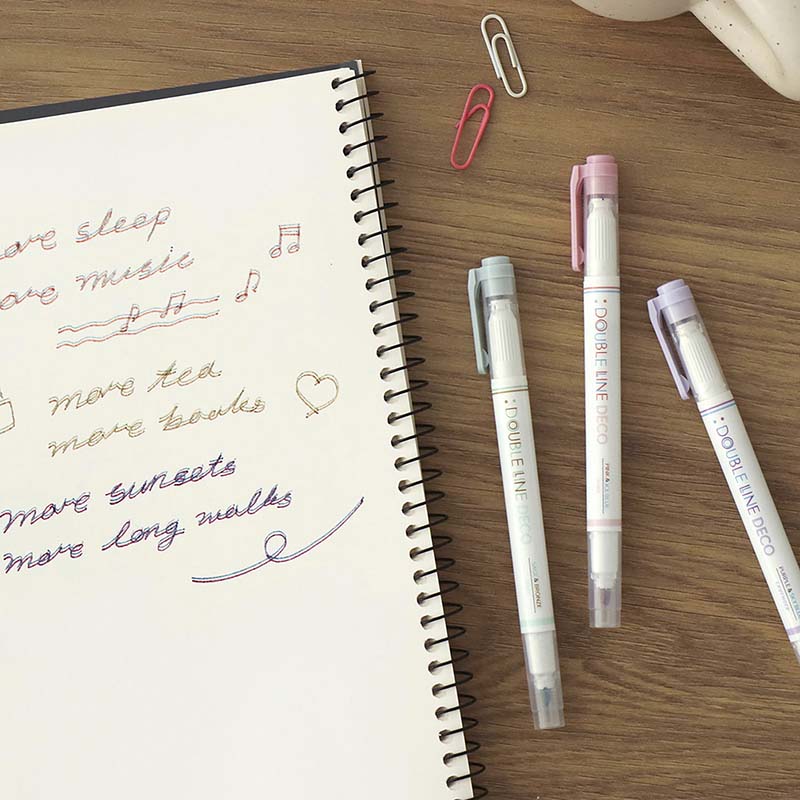 more sleep
more music
more tea
more books
more sunsets
more long walks
DOUBLE LINE DECO
SAGE & BRONZE
DOUBLE LINE DECO
PINK & ICE BLUE
DOUBLE LINE DECO
PURPLE & SKY